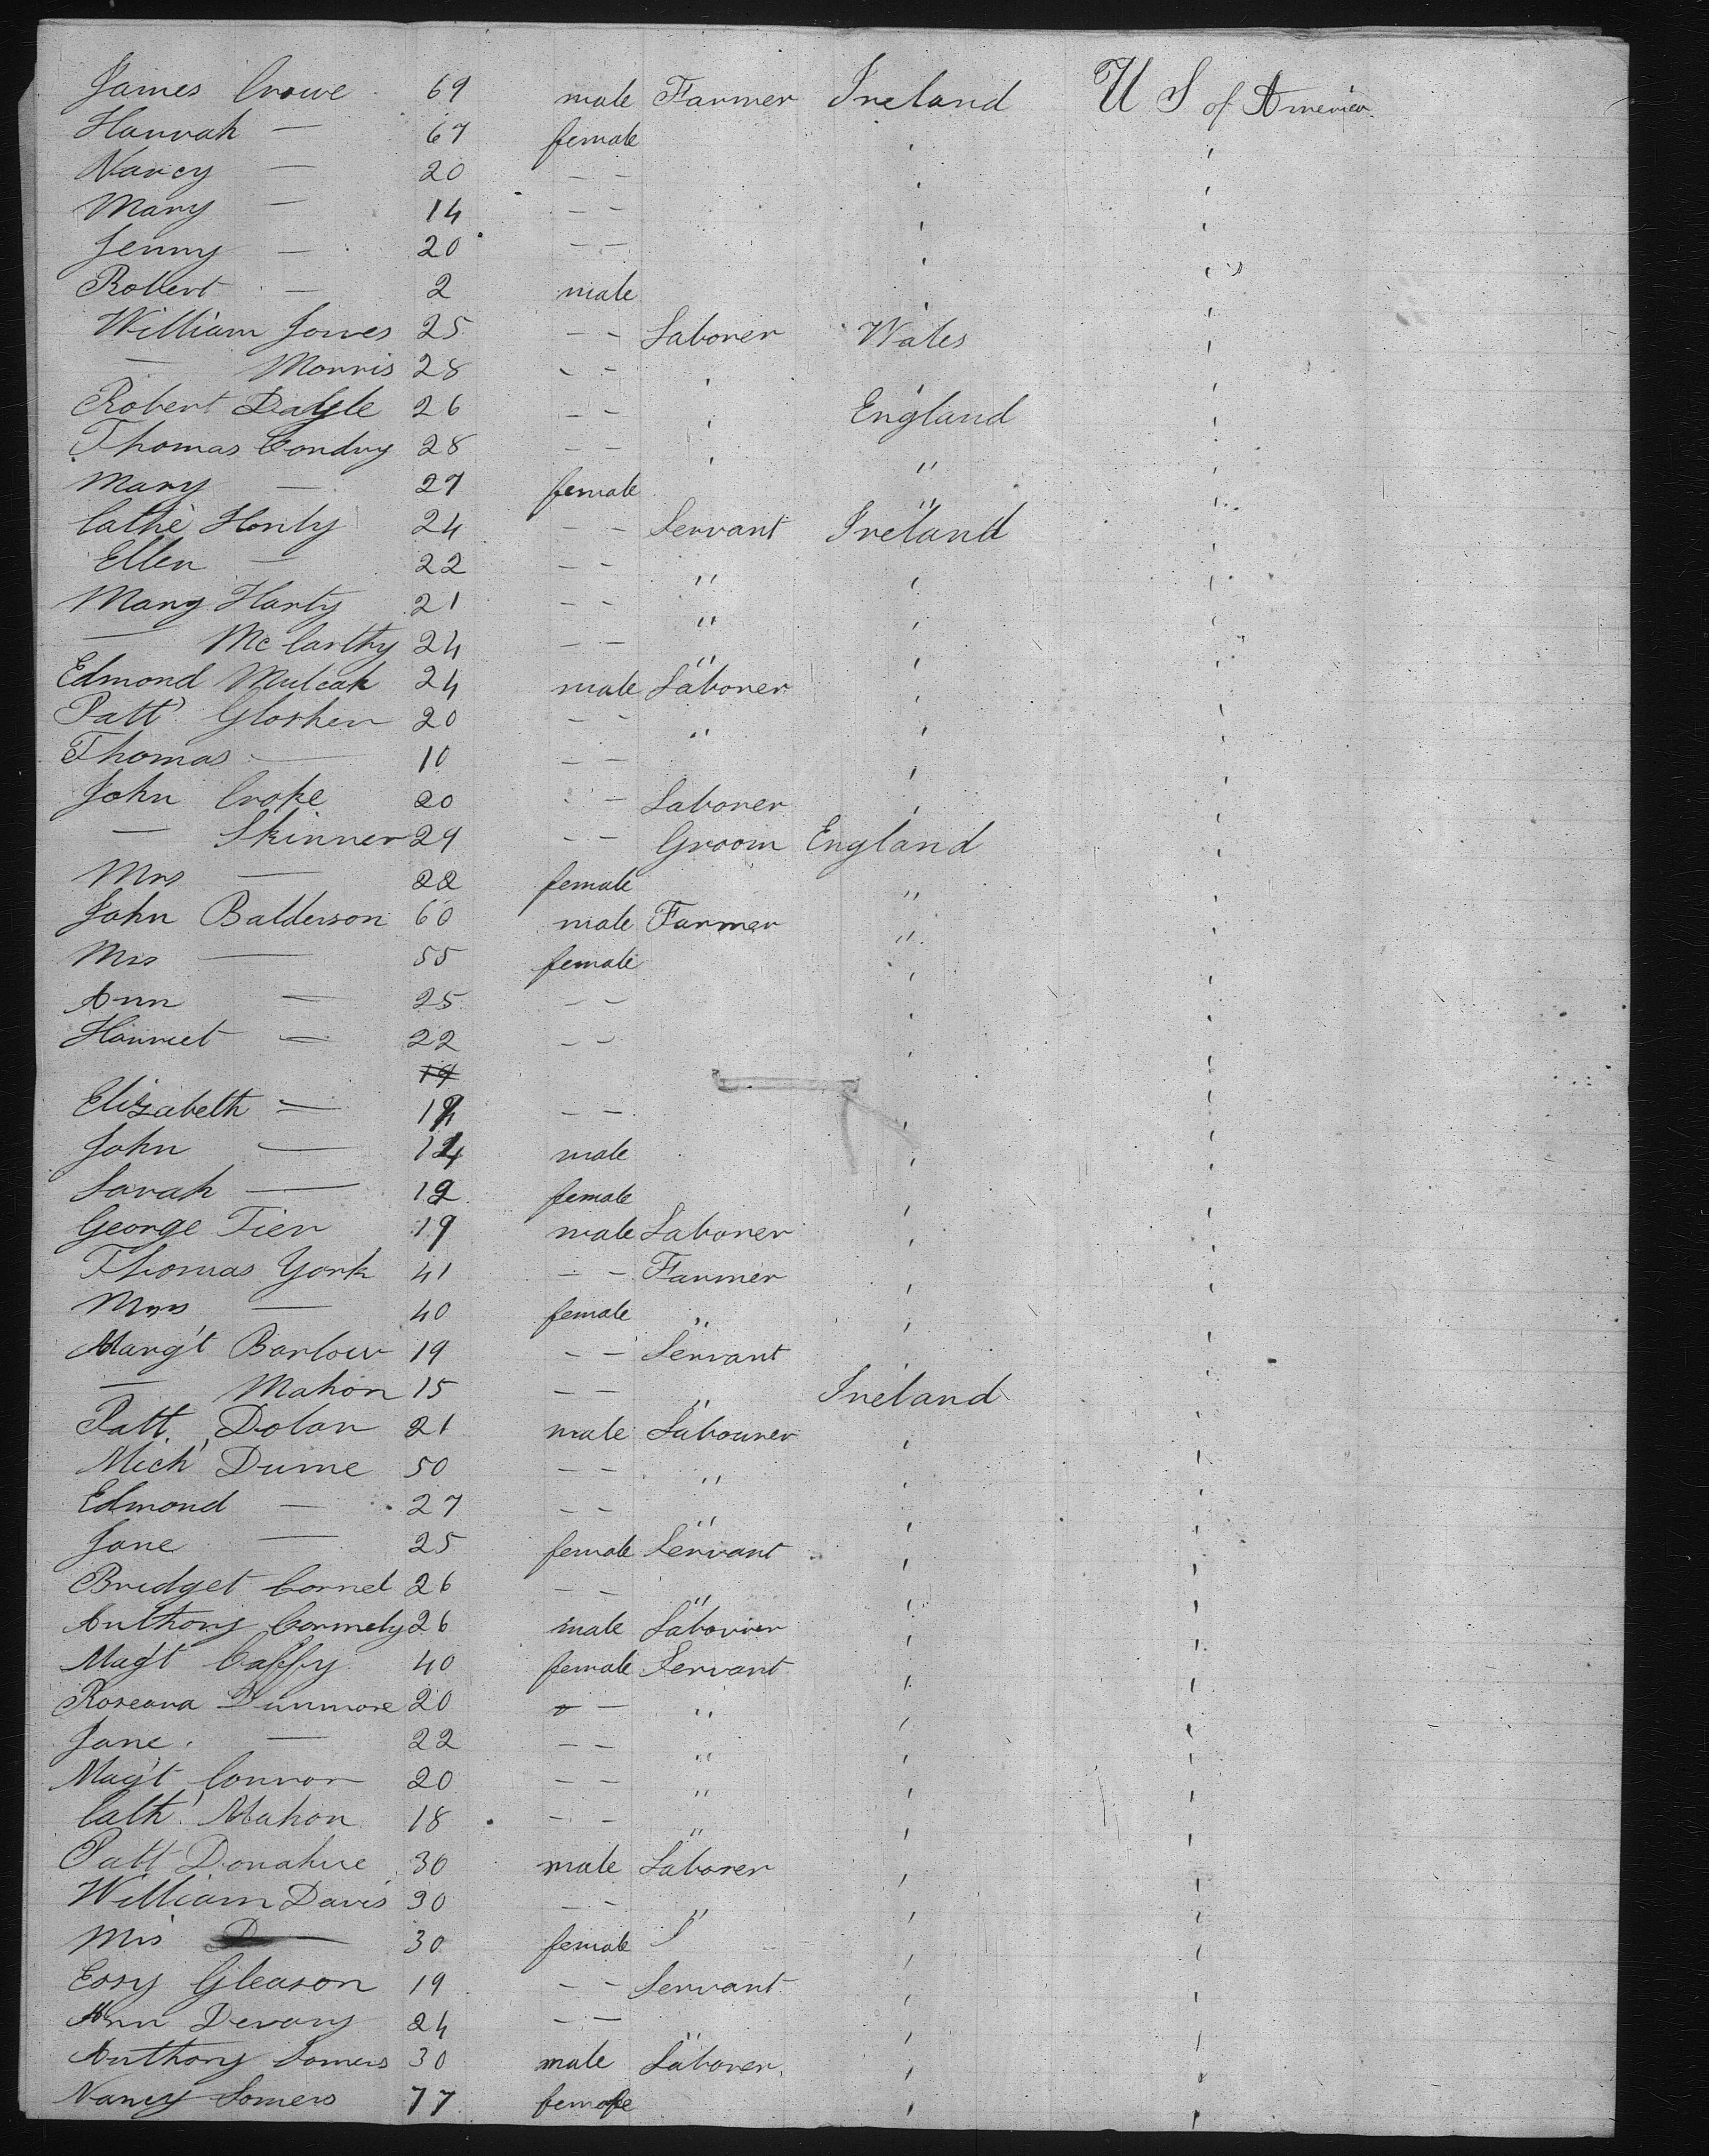 James Crowe 69 male Farmer Ireland U S of America
Hannah — 67 female ' '
Nancy — 20 — — ' '
Mary — 14 — — ' '
Jenny — 20 — — ' '
Robert — 2 male ' '
William Jones 25 — — Laborer Wales '
— Morris 28 — — ' ' '
Robert Dalyle 26 — — ' England '
Thomas Condry 28 — — ' " '
Mary — 27 female " '
Cathe Honty 24 — — Servant Ireland '
Ellen — 22 — — " ' '
Mary Harty 21 — — " ' '
— McCarthy 24 — — " ' '
Edmond Mulcah 24 male Laborer ' '
Patt' Gloshen 20 — — " ' '
Thomas — 10 — — ' '
John Croke 20 — — Laborer ' '
— Skinner 29 — — Groom England '
Mrs — 22 female " '
John Balderson 60 male Farmer " '
Mrs — 55 female ' '
Ann — 25 — — ' '
Harriet — 22 — — ' '
19
Elizabeth — — — ' '
John — 14 male ' '
Sarah — 12 female ' '
George Tier 19 male Laborer ' '
Thomas York 41 — — Farmer ' '
Mrs — 40 female " ' '
Marg't Barlow 19 — — Servant ' '
— Mahon 15 — — " Ireland '
Patt. Dolan 21 male Labourer ' '
Mich' Dunne 50 — — " ' '
Edmond — 27 — — " ' '
Jane — 25 female Servant ' '
Bridget Cornel 26 — — " ' '
Anthony Cormely 26 male Labourer ' '
Mag't Caffy 40 female Servant ' '
Roseana Dunmore 20 — — " ' '
Jane — 22 — — " ' '
Mag't Connor 20 — — " ' '
Cath' Mahon 18 — — " ' '
Patt Donahue 30 male Laborer ' '
William Davis 30 — — " ' '
Mrs — 30 female ' '
Essy Gleason 19 — — Servant ' '
Ann Devany 24 — — " ' '
Anthony Somers 30 male Laborer ' '
Nancy Somers 77 female ' '